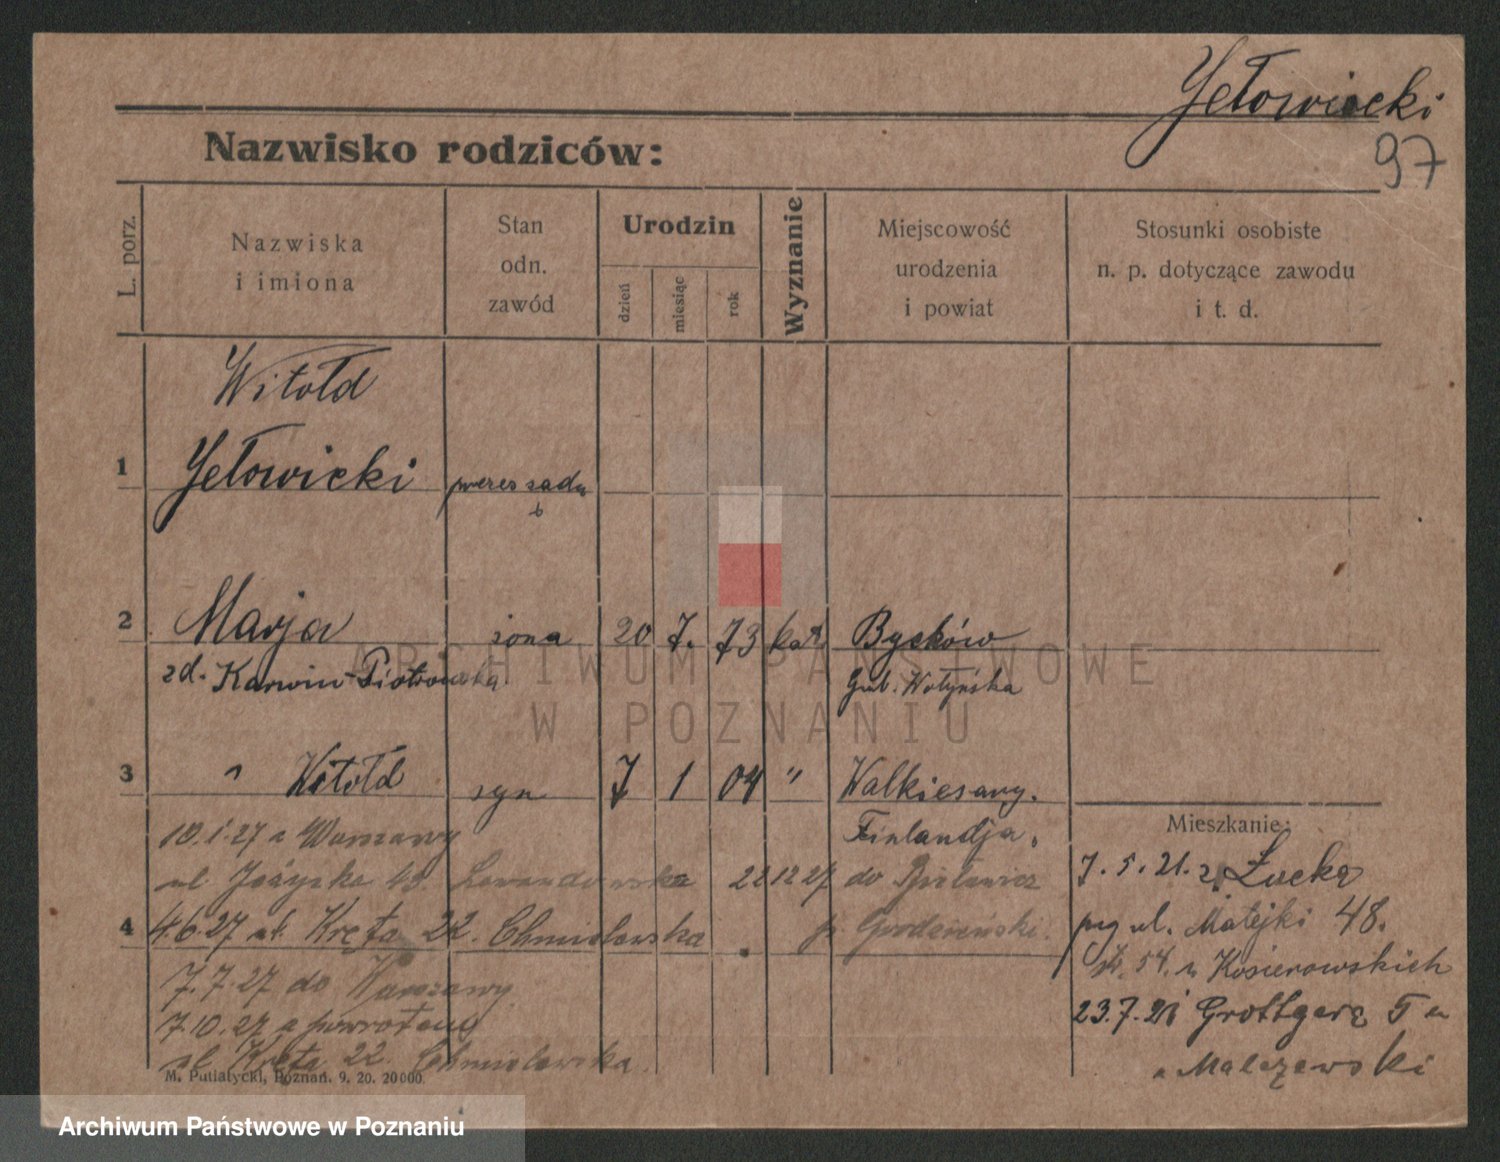 Jełowicki
97
Nazwisko rodziców:
L. porz.
Nazwiska
i imiona
Stan
odn.
zawód
Urodzin
dzień
miesiąc
rok
Wyznanie
Miejscowość
urodzenia
i powiat
Stosunki osobiste
n. p. dotyczące zawodu
i t. d.
Witołd
1 Jełowicki prezes sądu
2 Marja żona 20 7. 73 kat. Byczków
zd. Karwin-Piotrowska Gub. Wołyńska
ARCHIWUM PAŃSTWOWE
W POZNANIU
3 " Witołd syn 7 1 04 " Walkiesary.
Finlandja.
Mieszkanie:
10.1.27 z Warszawy
ul. 43. Lewandowska 22 12 27 do
7.5.21. z Łucka
4 4.6.27 ul. Kręta 22. Chmielewska p. Grodzieński.
ul. Matejki 48.
54. u Kosierowskich
7.7.27 do Warszawy
23.7.21 Grottgera 5 u
7.10.27 z powrotem
ul. Kręta 22. Chmielewska.
Malczewski
M. Putiatycki, Poznań. 9. 20. 20000.
Archiwum Państwowe w Poznaniu